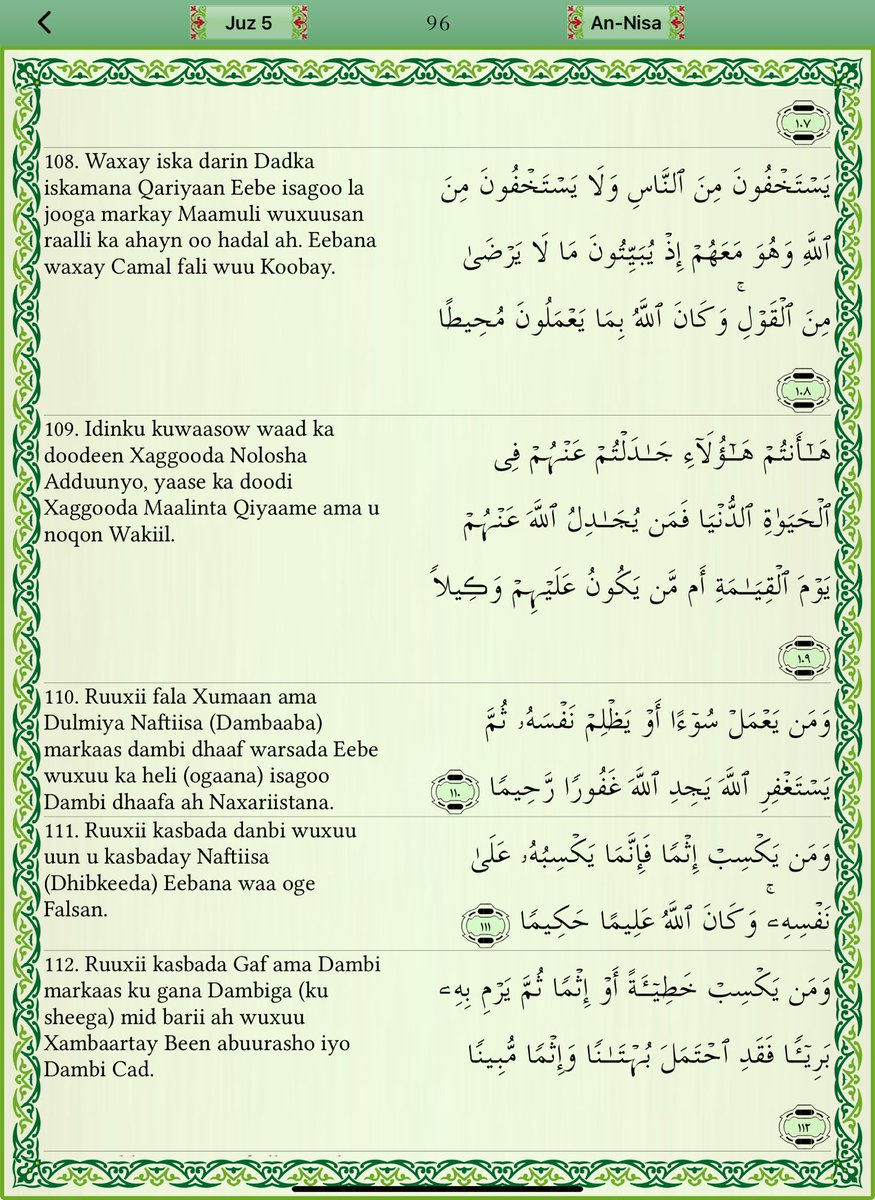 Juz 5
96
An-Nisa
١٠٧
108. Waxay iska darin Dadka
iskamana Qariyaan Eebe isagoo la
jooga markay Maamuli wuxuusan
raalli ka ahayn oo hadal ah. Eebana
waxay Camal fali wuu Koobay.
يَسْتَخْفُونَ مِنَ ٱلنَّاسِ وَلَا يَسْتَخْفُونَ مِنَ
ٱللَّهِ وَهُوَ مَعَهُمْ إِذْ يُبَيِّتُونَ مَا لَا يَرْضَىٰ
مِنَ ٱلْقَوْلِ ۚ وَكَانَ ٱللَّهُ بِمَا يَعْمَلُونَ مُحِيطًا
١٠٨
109. Idinku kuwaasow waad ka
doodeen Xaggooda Nolosha
Adduunyo, yaase ka doodi
Xaggooda Maalinta Qiyaame ama u
noqon Wakiil.
هَـٰٓأَنتُمْ هَـٰٓؤُلَآءِ جَـٰدَلْتُمْ عَنْهُمْ فِى
ٱلْحَيَوٰةِ ٱلدُّنْيَا فَمَن يُجَـٰدِلُ ٱللَّهَ عَنْهُمْ
يَوْمَ ٱلْقِيَـٰمَةِ أَم مَّن يَكُونُ عَلَيْهِمْ وَكِيلًا
١٠٩
110. Ruuxii fala Xumaan ama
Dulmiya Naftiisa (Dambaaba)
markaas dambi dhaaf warsada Eebe
wuxuu ka heli (ogaana) isagoo
Dambi dhaafa ah Naxariistana.
وَمَن يَعْمَلْ سُوٓءًا أَوْ يَظْلِمْ نَفْسَهُۥ ثُمَّ
يَسْتَغْفِرِ ٱللَّهَ يَجِدِ ٱللَّهَ غَفُورًا رَّحِيمًا ١١٠
111. Ruuxii kasbada danbi wuxuu
uun u kasbaday Naftiisa
(Dhibkeeda) Eebana waa oge
Falsan.
وَمَن يَكْسِبْ إِثْمًا فَإِنَّمَا يَكْسِبُهُۥ عَلَىٰ
نَفْسِهِۦ ۚ وَكَانَ ٱللَّهُ عَلِيمًا حَكِيمًا ١١١
112. Ruuxii kasbada Gaf ama Dambi
markaas ku gana Dambiga (ku
sheega) mid barii ah wuxuu
Xambaartay Been abuurasho iyo
Dambi Cad.
وَمَن يَكْسِبْ خَطِيٓـَٔةً أَوْ إِثْمًا ثُمَّ يَرْمِ بِهِۦ
بَرِيٓـًٔا فَقَدِ ٱحْتَمَلَ بُهْتَـٰنًا وَإِثْمًا مُّبِينًا
١١٢